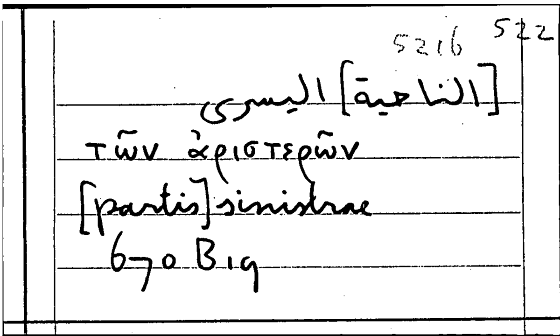 5216 522
[الناحية] اليسرى
τῶν ἀριστερῶν
[partis] sinistrae
670 B 19